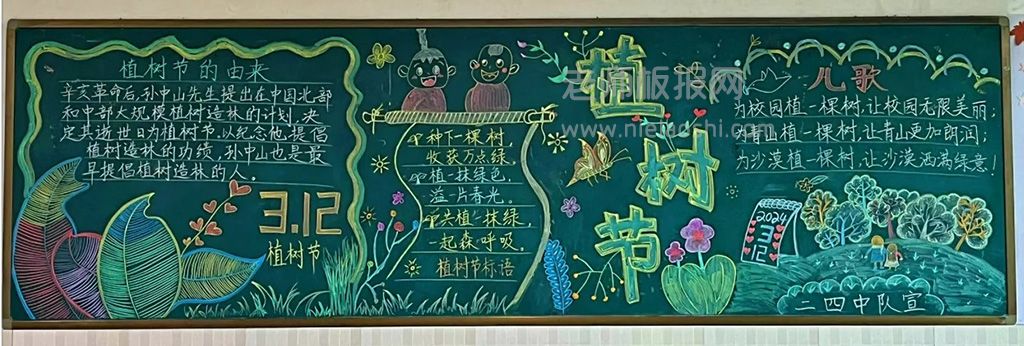 植树节的由来
辛亥革命后,孙中山先生提出在中国北部
和中部大规模植树造林的计划,决
定其逝世日为植树节,以纪念他,提倡
植树造林的功绩,孙中山也是最
早提倡植树造林的人。
3.12
植树节
种下一棵树,
收获万点绿。
植一抹绿色,
溢一片春光。
共植一抹绿,
一起森呼吸。
植树节标语
植
树
节
老房板报网
www.
儿歌
为校园植一棵树,让校园无限美丽;
植一棵树,让青山更加朗润;
为沙漠植一棵树,让沙漠洒满绿意!
2024
3
12
二四中队宣